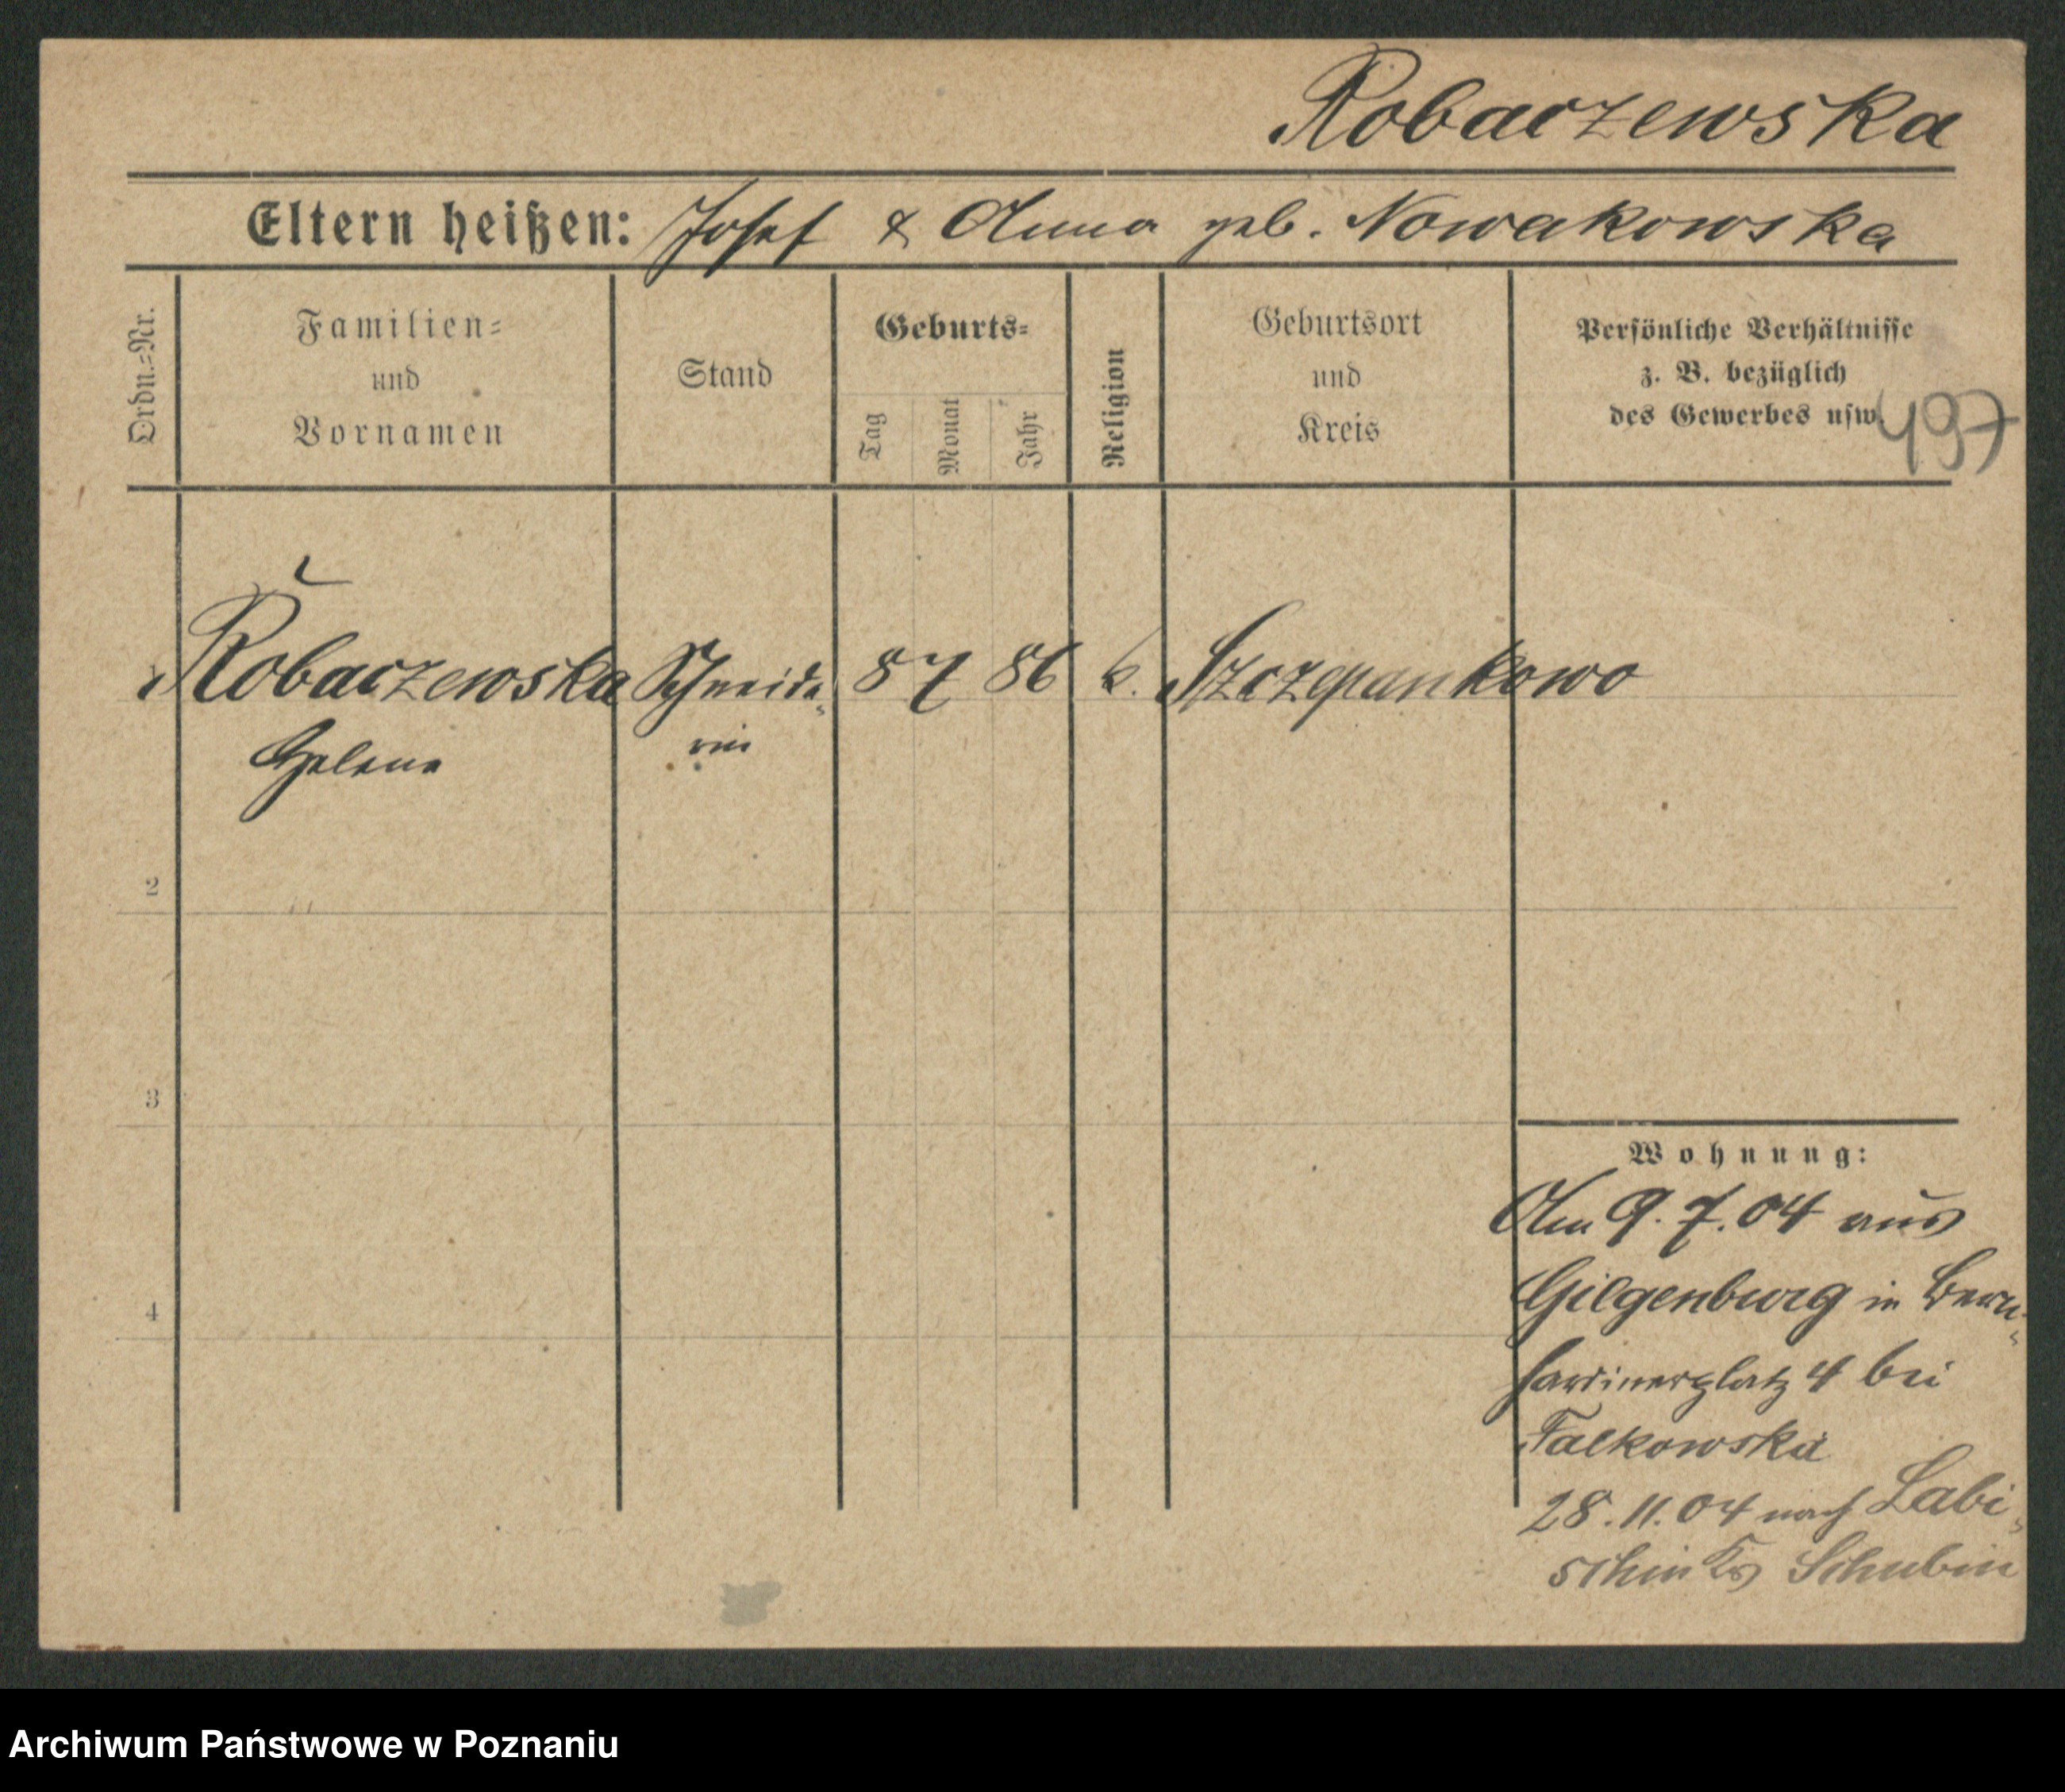 Robaczewska
Eltern heißen: Josef & Anna geb. Nowakowska
Ordn.=Nr.
Familien=
und
Vornamen
Stand
Geburts=
Tag
Monat
Jahr
Religion
Geburtsort
und
Kreis
Persönliche Verhältnisse
z. B. bezüglich
des Gewerbes usw.
497
1 Robaczewska Schneide- 8 7 86 k. Szczepankowo
Helene rin
2
3
4
Wohnung:
Am 9.7.04 aus
Gilgenburg in Bern-
hardinerplatz 4 bei
Falkowska
28.11.04 nach Labi-
schin Krs Schubin
Archiwum Państwowe w Poznaniu